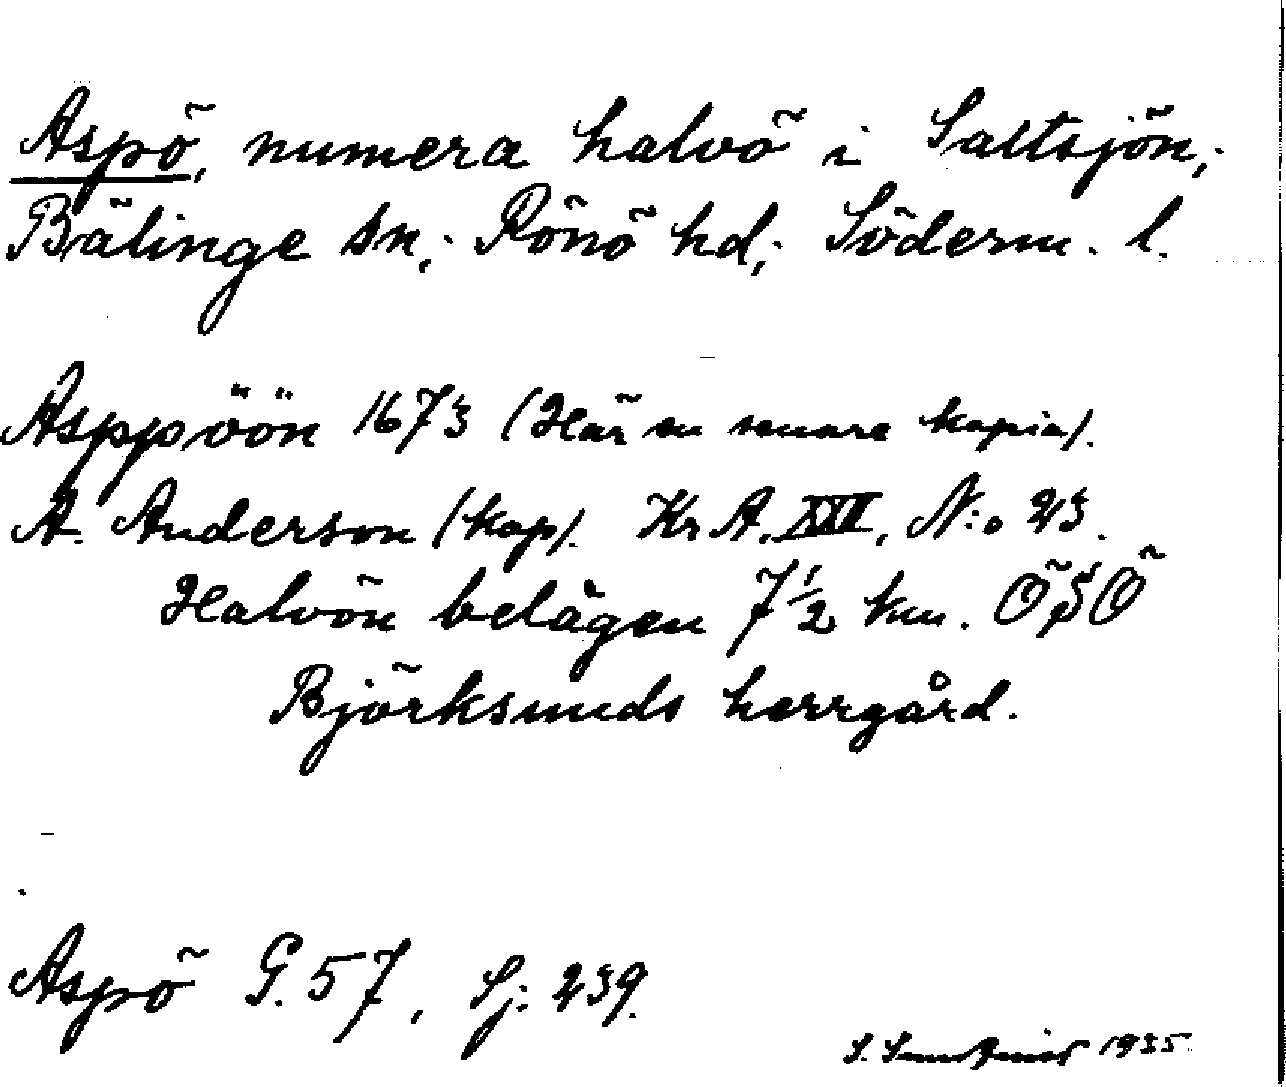 Aspö, numera halvö i Saltsjön,
Bälinge sn, Rönö hd, Söderm. l.
Asppöön 1673 (Här en senare kopia).
A. Anderson (kop). Kr A. XXV, N:o 23.
Halvön belägen 7½ km. ÖSÖ
Björksunds herrgård.
Aspö G. 57, Sj: 239.
S. 1935